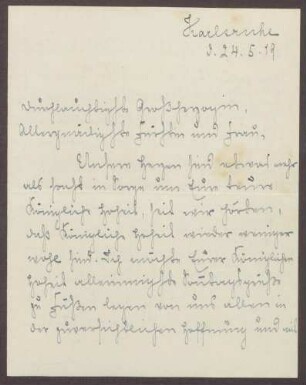 Karlsruhe
d. 24.5.19
Durchlauchtigste Großherzogin,
Allergnädigste Fürstin und Frau,
Unsere Herzen sind etwas mehr
als sonst in Sorge um Eure teure
Königliche Hoheit, seit wir hörten,
daß Königliche Hoheit wieder weniger
wohl sind. Ich möchte Eurer Königlichen
Hoheit alleruntertänigste
zu Füßen legen von uns allen in
der zuversichtlichen Hoffnung und mit